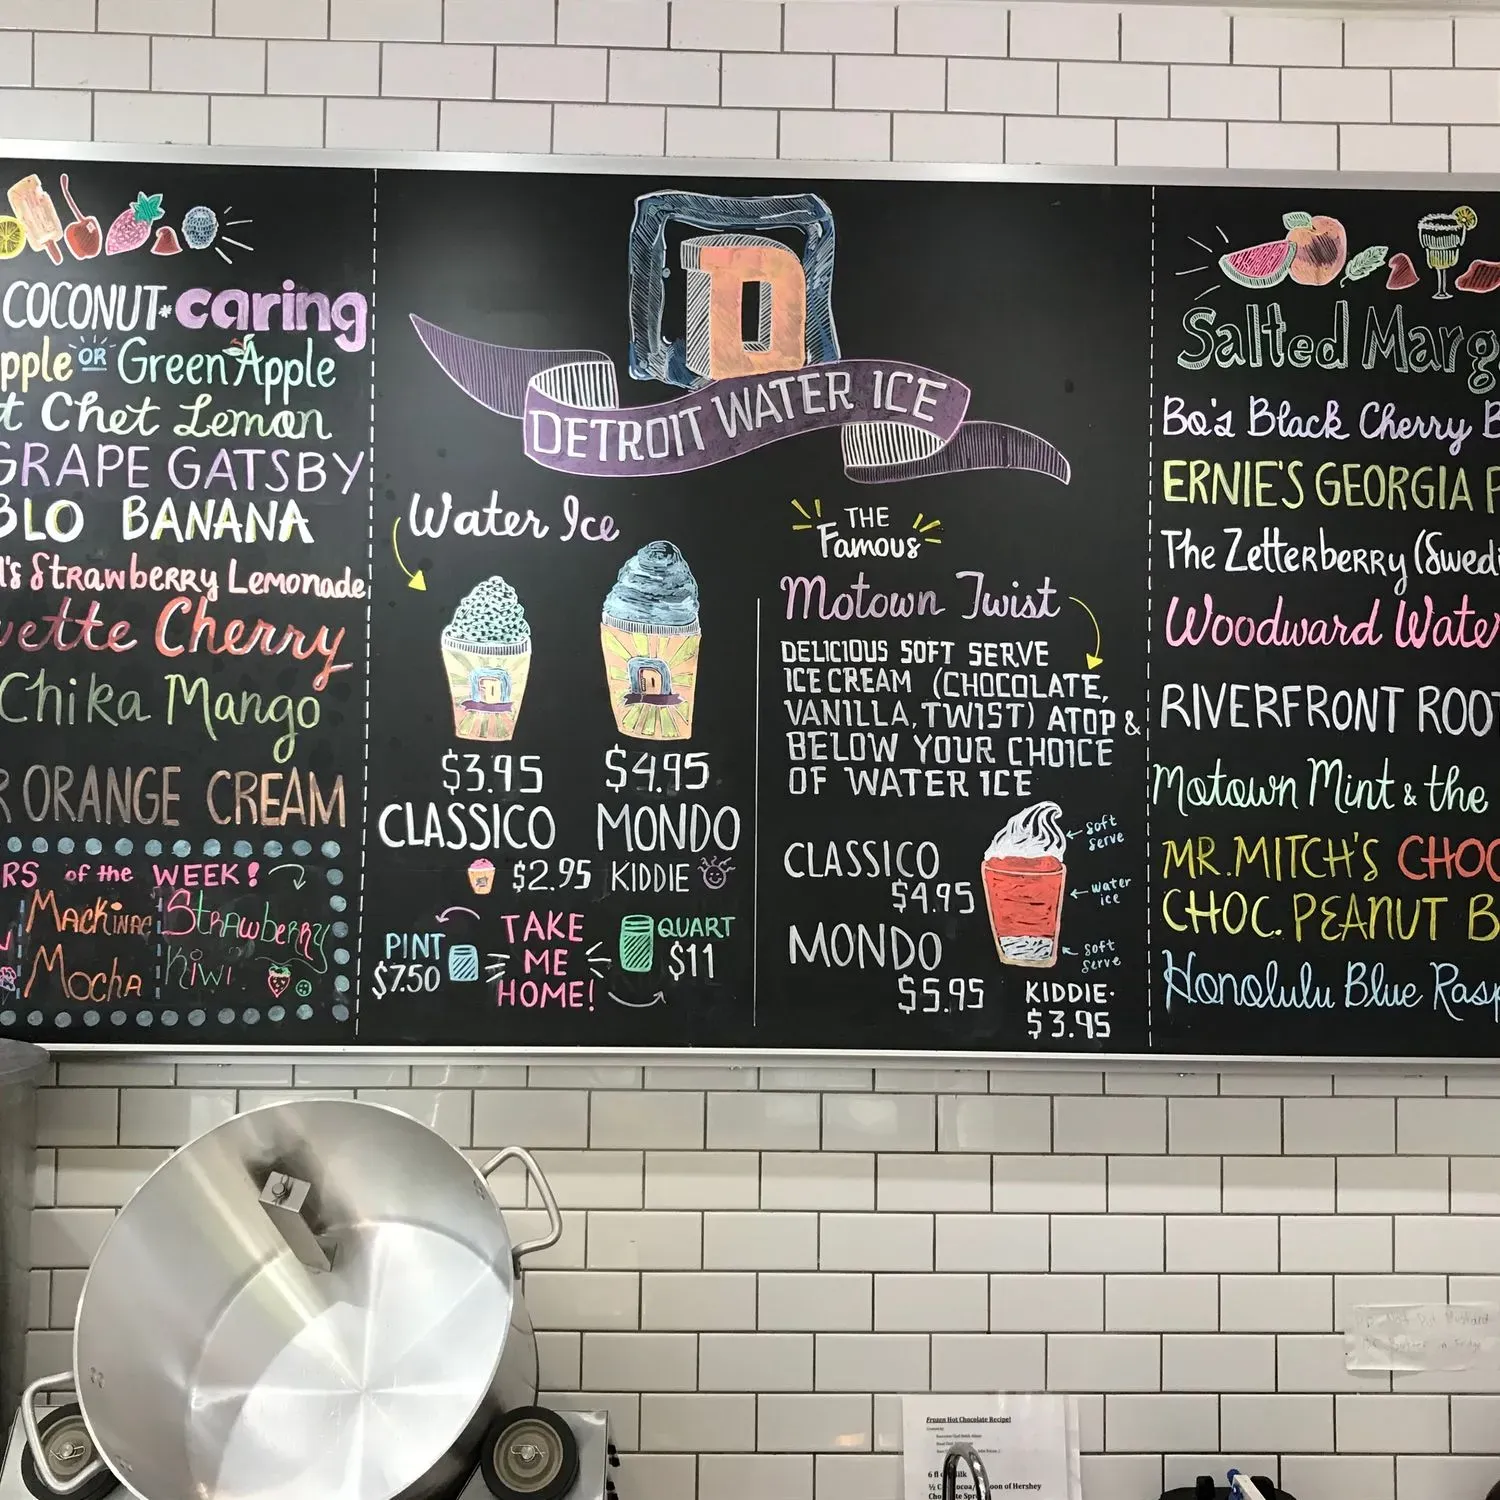 COCONUT* caring
pple OR Green Apple
t Chet Lemon
GRAPE GATSBY
BLO BANANA
l's Strawberry Lemonade
vette Cherry
Chika Mango
R ORANGE CREAM
RS of the WEEK!
Mackinac
Mocha
Strawberry
Kiwi
D
DETROIT WATER ICE
Water Ice
D
D
$3.95
CLASSICO
$4.95
MONDO
$2.95 KIDDIE
PINT
$7.50
TAKE
ME
HOME!
QUART
$11
THE
Famous
Motown Twist
DELICIOUS SOFT SERVE
ICE CREAM (CHOCOLATE,
VANILLA, TWIST) ATOP &
BELOW YOUR CHOICE
OF WATER ICE
CLASSICO
$4.95
MONDO
$5.95
soft
serve
water
ice
soft
serve
KIDDIE·
$3.95
Salted Marg
Bo's Black Cherry B
ERNIE'S GEORGIA P
The Zetterberry (Swedi
Woodward Water
RIVERFRONT ROOT
Motown Mint & the
MR. MITCH'S CHOC
CHOC. PEANUT B
Honolulu Blue Rasp
Frozen Hot Chocolate Recipe!
6 fl
lk
½ C
ocoa/
oon of Hershey
Cho
te